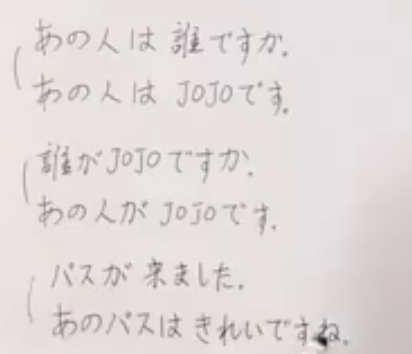 あの人は誰ですか.
あの人は JOJOです.
誰がJOJOですか.
あの人が JOJOです.
バスが 来ました.
あのバスは きれいですね.